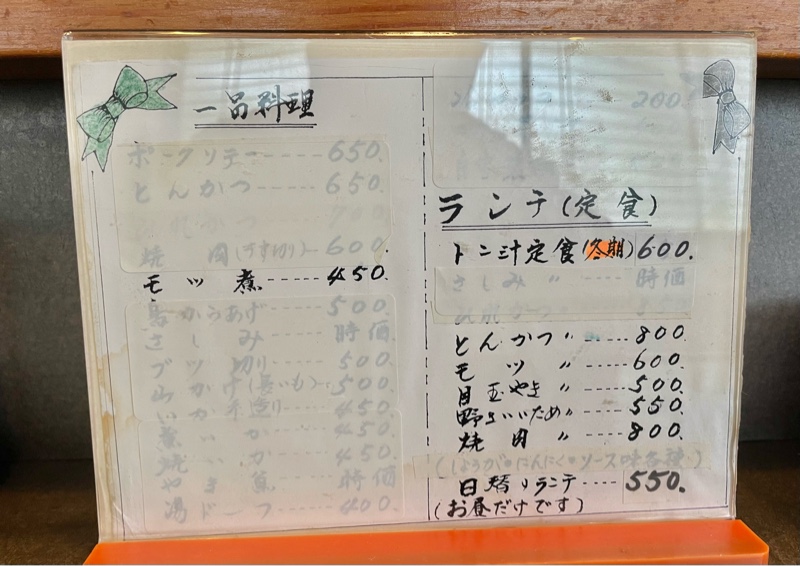 一品料理
ポークソテー-----650.
とんかつ----650.
焼 肉(うす切り)--600.
モツ 煮-----450.
鳥からあげ-----500
さ し み----時価
ブ ツ 切り-----500.
山 か け(長いも)--500.
450
450
450.
時価
湯ドーフ----400.
200.
ランチ(定食)
トン汁定食(冬期)600.
さしみ 〃 ----時価
とんかつ 〃 -----800.
モ ツ 〃 -----600.
目玉やき 〃 ----500.
野さいいため〃----550.
焼 肉 〃 ----800.
(しょうが・にんにく・ソース味各種)
日替りランチ----550.
(お昼だけです)